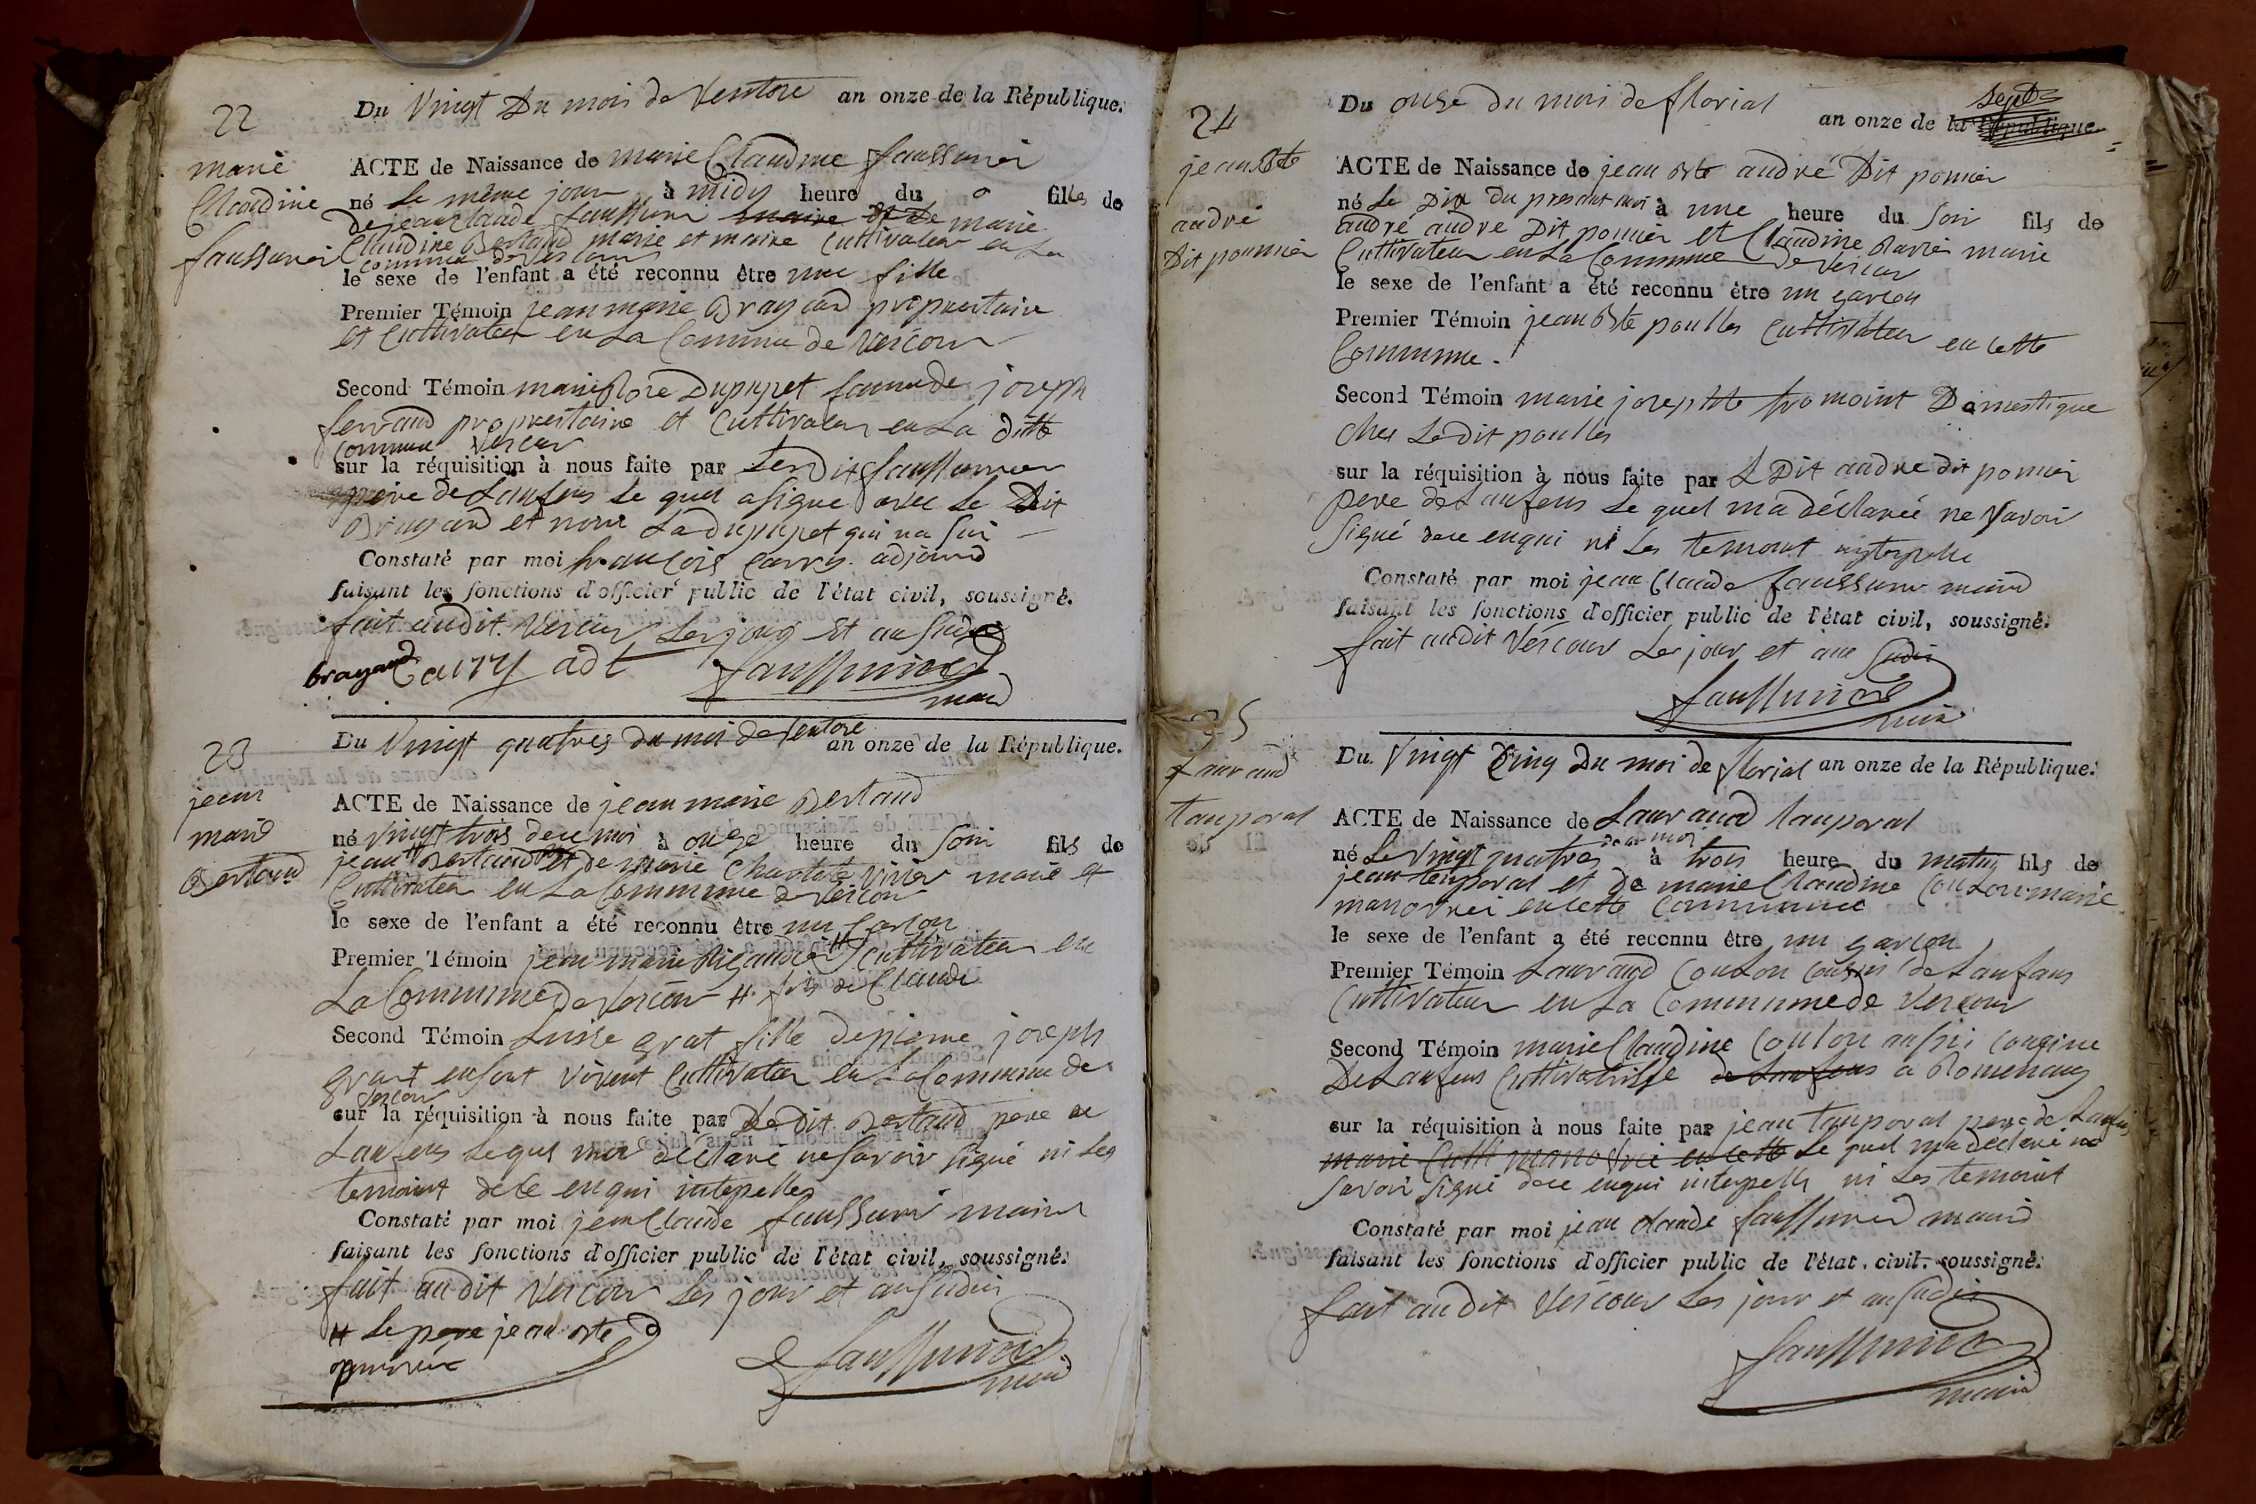 22
marie
Claudine
faussurier
Du Vingt Du mois de Ventose an onze de la République.
ACTE de Naissance de marie Claudine faussurier
né le même jour à midy heure du fille de
de jean claude faussurier maire et de marie
Claudine Bertaud marié et maire Cultivateur en la
commune de Vescour
le sexe de l'enfant a été reconnu être une fille
Premier Témoin jean marie Brayard propriestaire
et Cultivateur en La Commune de Vescour
Second Témoin marie Dupupet famme de joseph
ferrand propriestaire et Cultivateur en La ditte
commune Vescour
sur la réquisition à nous faite par Ledit faussurier
pere de Lanfens le quel a signé avec le Dit
Brayard et non La dupupet qui na sui
Constaté par moi francois Carry adjoind
faisant les fonctions d'officier public de l'état civil, soussigné.
fait audit Vescour Les jour et an sudit
brayard Carry adt faussurier
maire
23
jean
marie
Bertaud
Du Vingt quatres du moi de Ventose an onze de la République.
ACTE de Naissance de jean marie Bertaud
né vingt trois de ce moi à onze heure du soir fils de
jean Bertaud et de marie Charlote vivier marié et
Cultivateur en La Commune de Vescour
le sexe de l'enfant a été reconnu être un Garson
Premier Témoin jean marie Rigaudier # Cultivateur en
La Commune de Vescour # fils de Claude
Second Témoin Luise grat fille de pierre joseph
grat enfant vivent Cultivateur en La Commune de
Vescour
sur la réquisition à nous faite par Le Dit Bertaud pere de
Lanfens Lequel ma déclaré ne savoir signé ni Les
temoint de ce enqui intepelles
Constaté par moi jean Claude faussurier maire
faisant les fonctions d'officier public de l'état civil, soussigné.
fait audit Vescour Les jour et an sudit
# Le pere jean bte
approuvé
faussurier
maire
24
jean bte
andré
Dit pomier
Du onze du mois de florial
an onze de la République
ACTE de Naissance de jean bte andré Dit pomier
né Le Dix du present moi à une heure du soir fils de
andré andre Dit pomier et Claudine Darvier marié
Cultivateur en La Commune de Vescour
le sexe de l'enfant a été reconnu être un garcon
Premier Témoin jean bte poulles Cultivateur en cette
Commune.
Second Témoin marie josephte fromoint Domestique
Ches Ledit poulles
sur la réquisition à nous faite par L Dit andre dit pomier
pere de Lanfens Le quel ma déclarée ne savoir
signé de ce enqui ni Les temoint
Constaté par moi jean Claude faussurier maire
faisant les fonctions d'officier public de l'état civil, soussigné.
fait audit Vescour Les jour et an sudit
faussurier
maire
25
Laurand
Tauporal
Du Vingt Cinq Du moi de florial an onze de la République.
ACTE de Naissance de Laurand Tauporal
de ce moi
né Le Vingt quatres à trois heure du matin fils de
jean tauporal et de marie Claudine Coulon marié
manovrei en cette Commune
le sexe de l'enfant a été reconnu être un garcon
Premier Témoin Laurand Coulon cousin de Lanfans
Cultivateur en La Commune de Vescour
Second Témoin marie Claudine Coulon aussi cousine
De Lanfens Cultivatrisse de Lanfens a Romenay
sur la réquisition à nous faite par jean tauporal pere de Lanfens
marié Culti manovrei en cette Le quel ma déclaré ne
savoir signé de ce enqui intepelle ni Les temoint
Constaté par moi jean claude faussurier maire
faisant les fonctions d'officier public de l'état civil, soussigné.
fait audit Vescour Les jour et an sudit
faussurier
maire